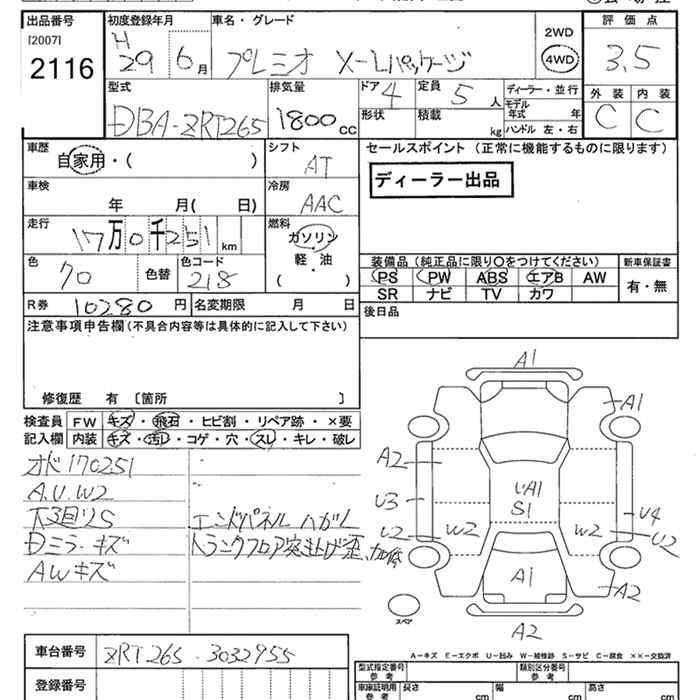 出品番号 初度登録年月 車名・グレード 2WD 評価点
[2007] H
2116 29 6月 プレミオ X-Lパッケージ 4WD 3.5
型式 排気量 ドア 定員 ディーラー・並行 外装 内装
DBA-ZRT265 1800cc 4 5人 モデル年式 年 C C
形状 積載 kg ハンドル 左・右
車歴 シフト セールスポイント (正常に機能するものに限ります)
自家用・( ) AT
ディーラー出品
車検 冷房
年 月( 日) AAC
走行 燃料
17万0千251km ガソリン
軽・油
( )
色 色替 色コード 装備品 (純正品に限り〇をつけてください) 新車保証書
70 218 PS PW ABS エアB AW 有・無
SR ナビ TV カワ
R券 10280円 名変期限 月 日 後日品
注意事項申告欄 (不具合内容等は具体的に記入して下さい)
修復歴 有 〔箇所 〕
検査員 FW キズ・飛石・ヒビ割・リペア跡・×要
記入欄 内装 キズ・汚レ・コゲ・穴・スレ・キレ・破レ
オド170251
A.U.W2
下廻りS エンドパネル ハガレ
Dミラーキズ トランクフロア突き上げ歪
AWキズ
A1
A1
A2
U3
U2
W2
いA1
S1
W2
U4
U2
A1
A2
A2
スペア
A-キズ E-エクボ U-凹み W-補修跡 S-サビ C-腐食 ××-交換済
車台番号 ZRT265-3032955
登録番号
型式指定番号 参考 類別区分番号 参考
車庫証明用 参考 長さ cm 幅 cm 高さ cm